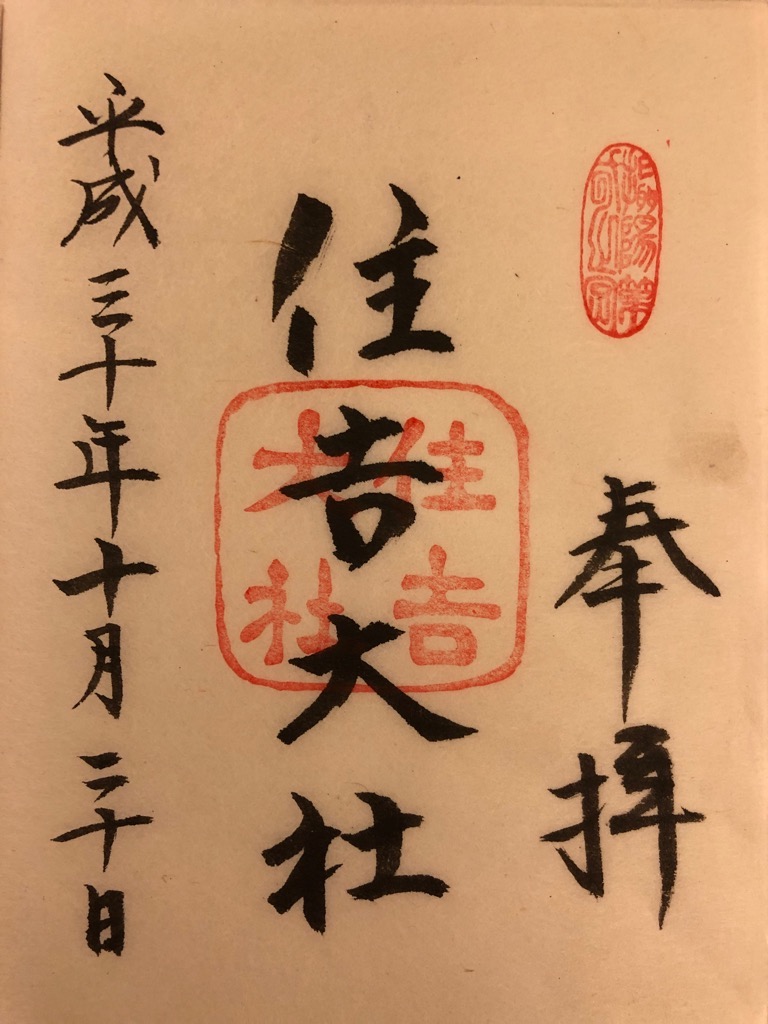 奉拝
住吉大社
住吉
大社
平成三十年十月二十日